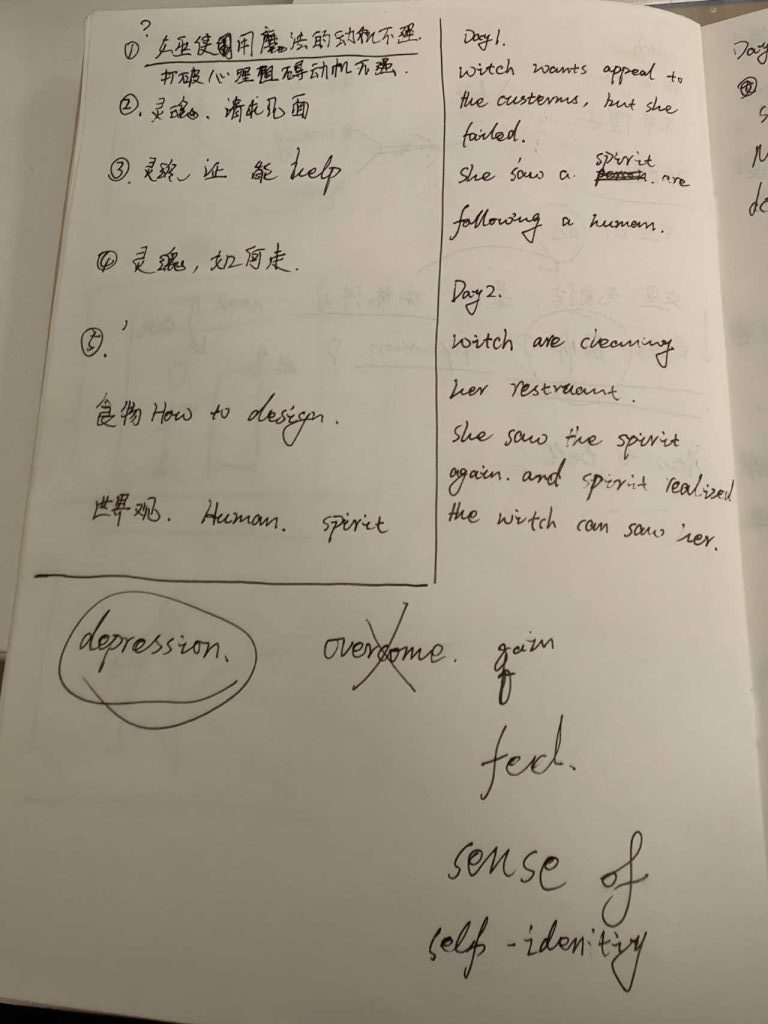 ?
① 女巫使用魔法的动机不强.
打破心理阻碍动机不强.
②. 灵魂、请求见面
③. 灵魂、证 能 help
④ 灵魂, 如何走.
⑤.
食物 How to design.
世界观. Human. spirit
Day1.
witch wants appeal to
the custerms, but she
failed.
She saw a spirit are
following a human.
Day2.
witch are cleaning
her restruant.
She saw the spirit
again. and spirit realized
the witch can saw her.
depression.
overcome. gain
feel.
sense of
self-idenitiy
Day